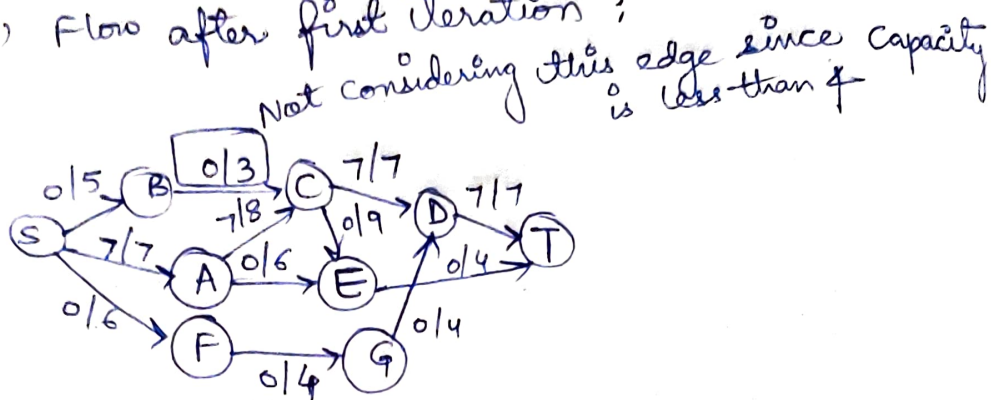 , Flow after first iteration ;
Not considering this edge since capacity
is less than 4
0/5 B 0/3 C 7/7 D 7/7
S 7/7 7/8 0/9 T
A 0/6 E 0/4
0/6 F 0/4 G 0/4